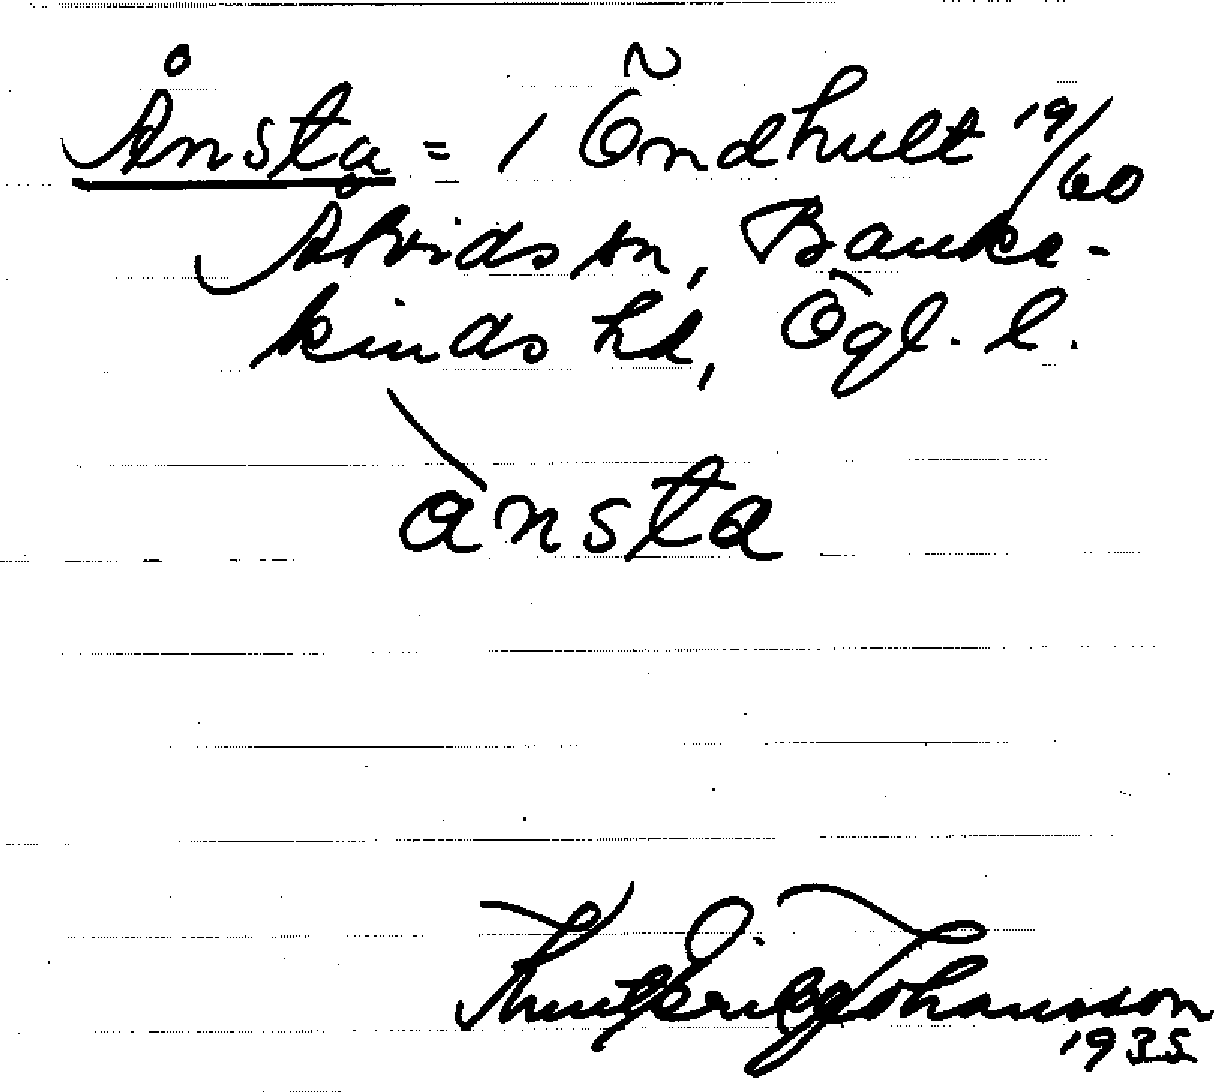 Ånsta = 1 Öndhult 19/60
Ålvidson, Banke-
kinds hd, Ögl. l.
ànsta
Knut Erik Johansson
1935